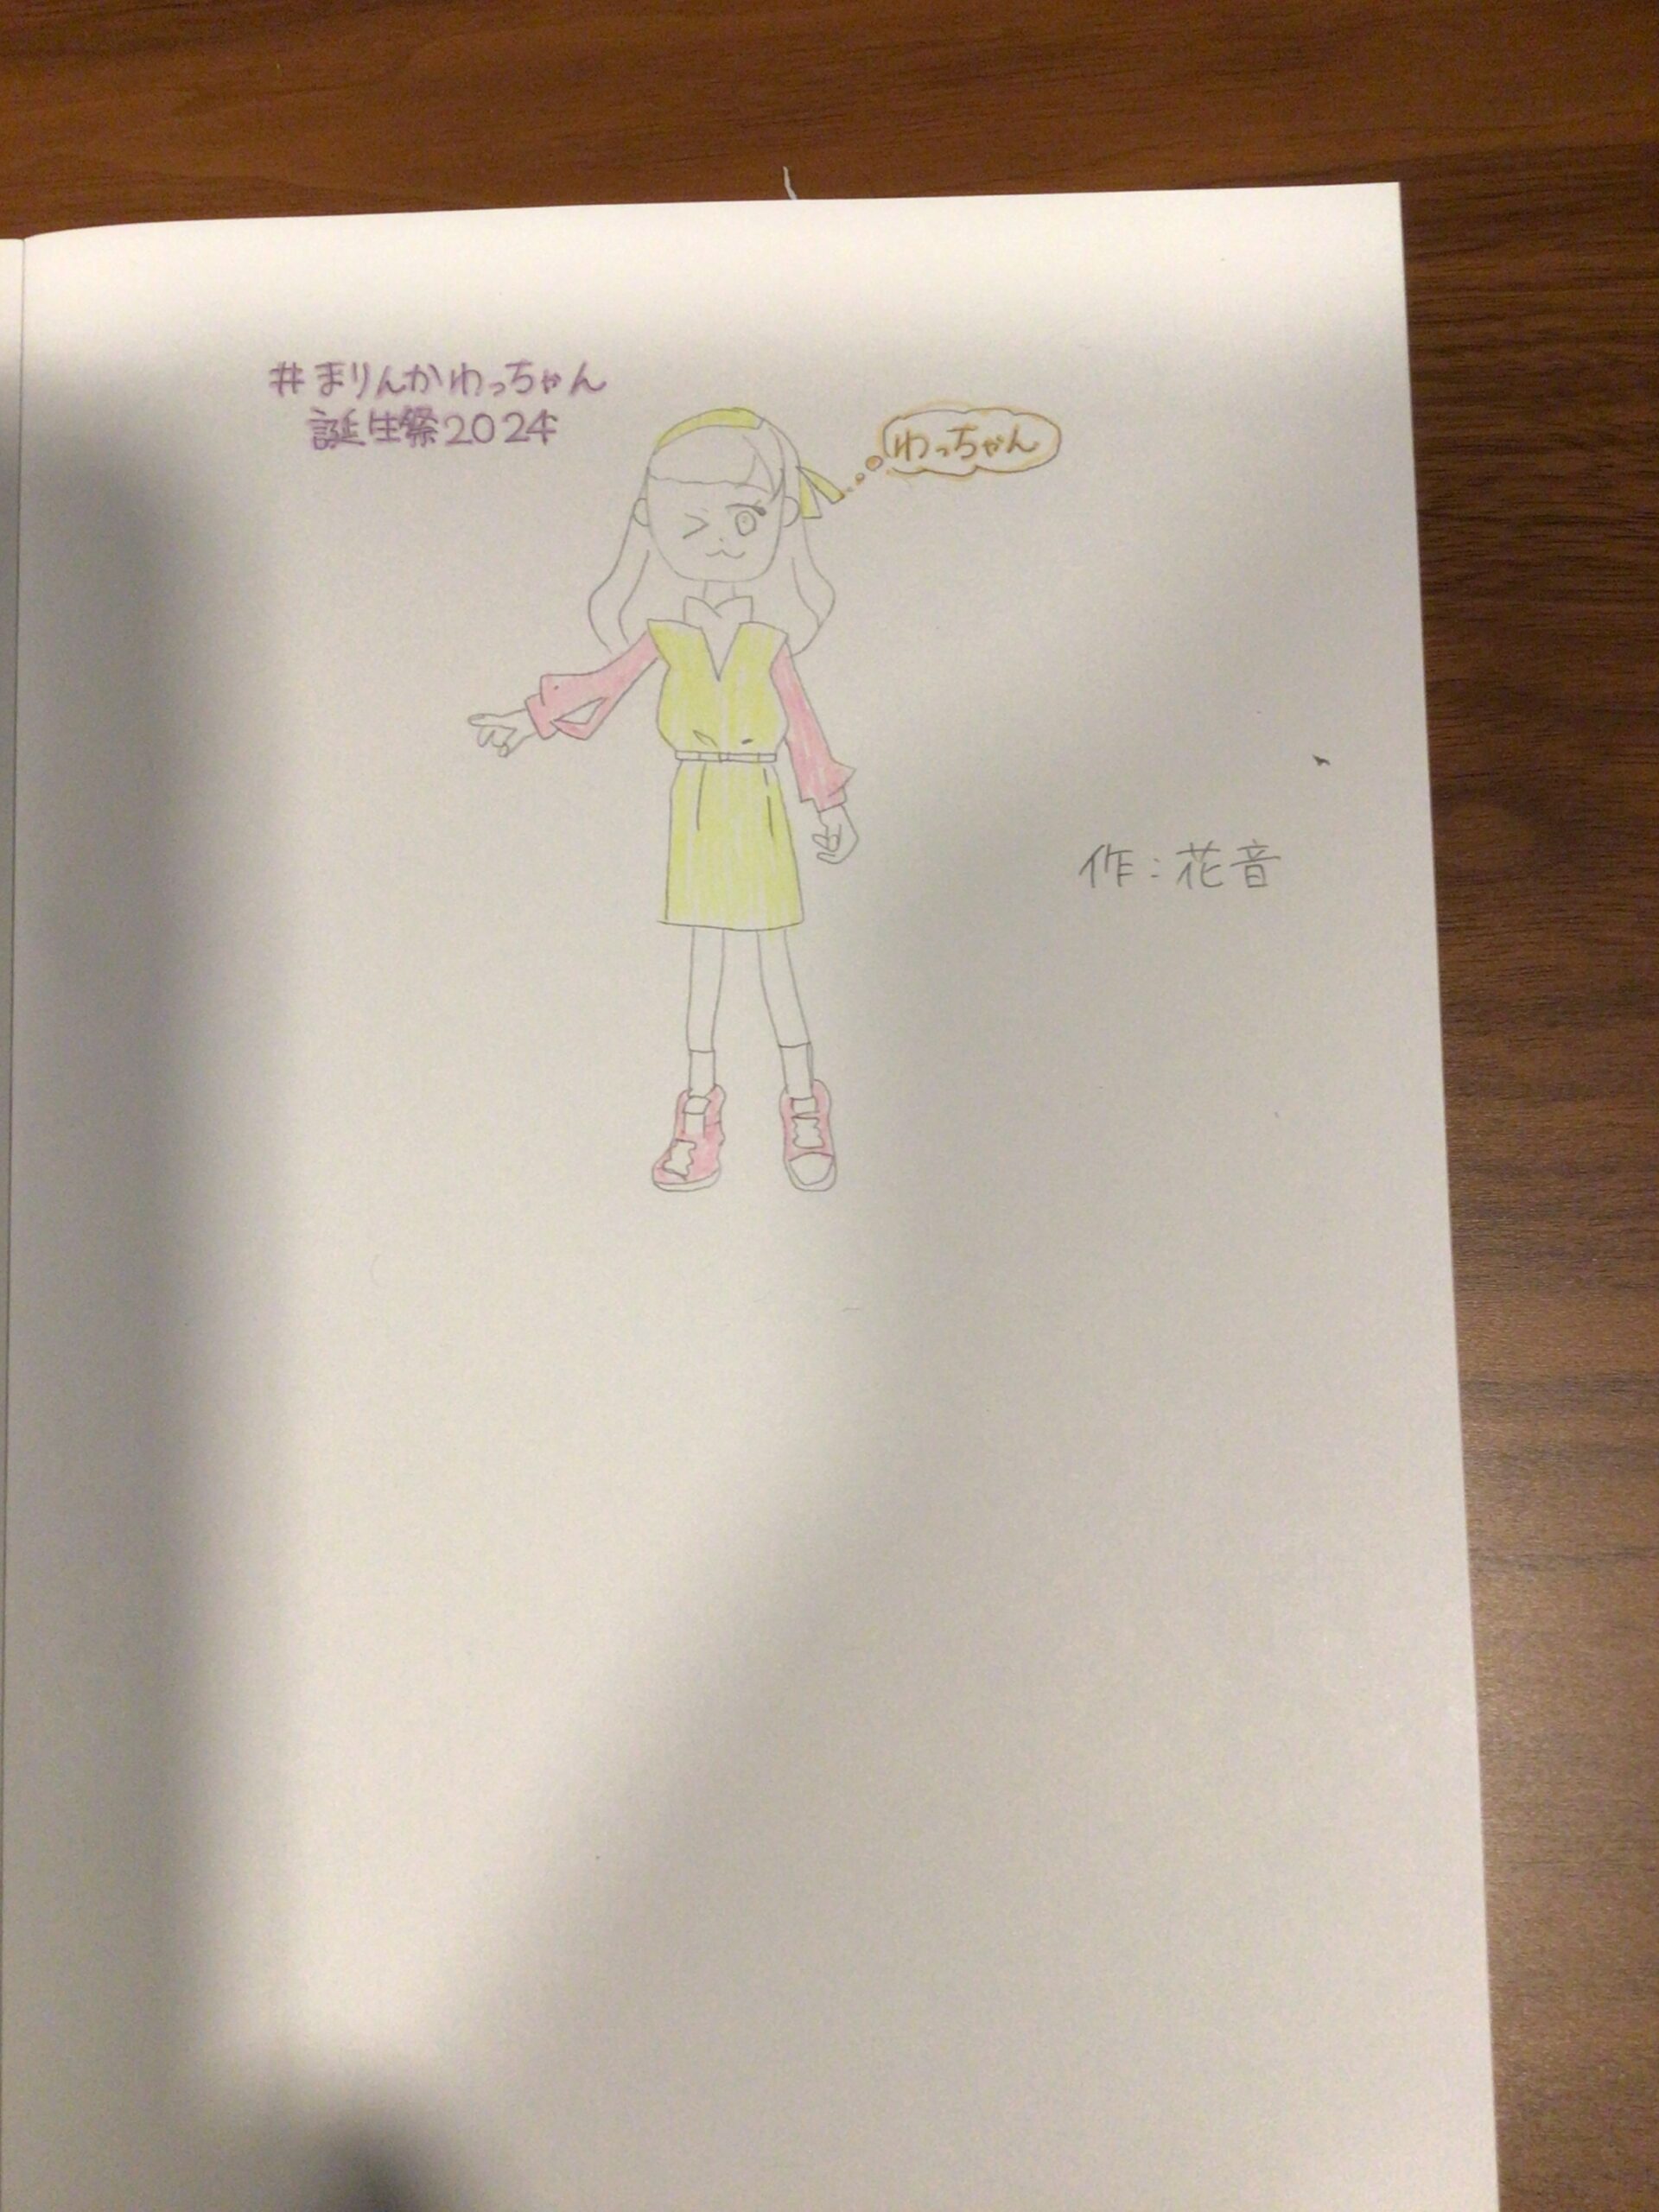 #まりんかわっちゃん
誕生祭2024
わっちゃん
作:花音